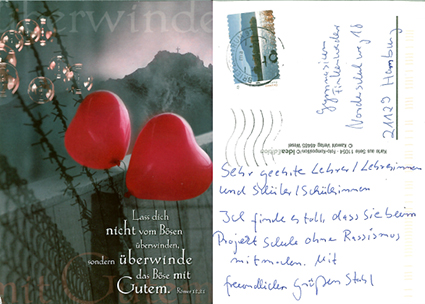 überwinde
Lass dich
nicht vom Bösen
überwinden,
sondern überwinde
das Böse mit
Gutem. Römer 12,21
Gymnasium
Finkenwerder
Norderschulweg 18
21129 Hamburg
Karte aus Serie 11054 · Foto-Komposition © Idea Edition
© Kawohl Verlag 46485 Wesel
Sehr geehrte Lehrer/Lehrerinnen
und Schüler/Schülerinnen
Ich finde es toll, dass Sie beim
Projekt Schule ohne Rassismus
mitmachen. Mit
freundlichen Grüßen Stahl